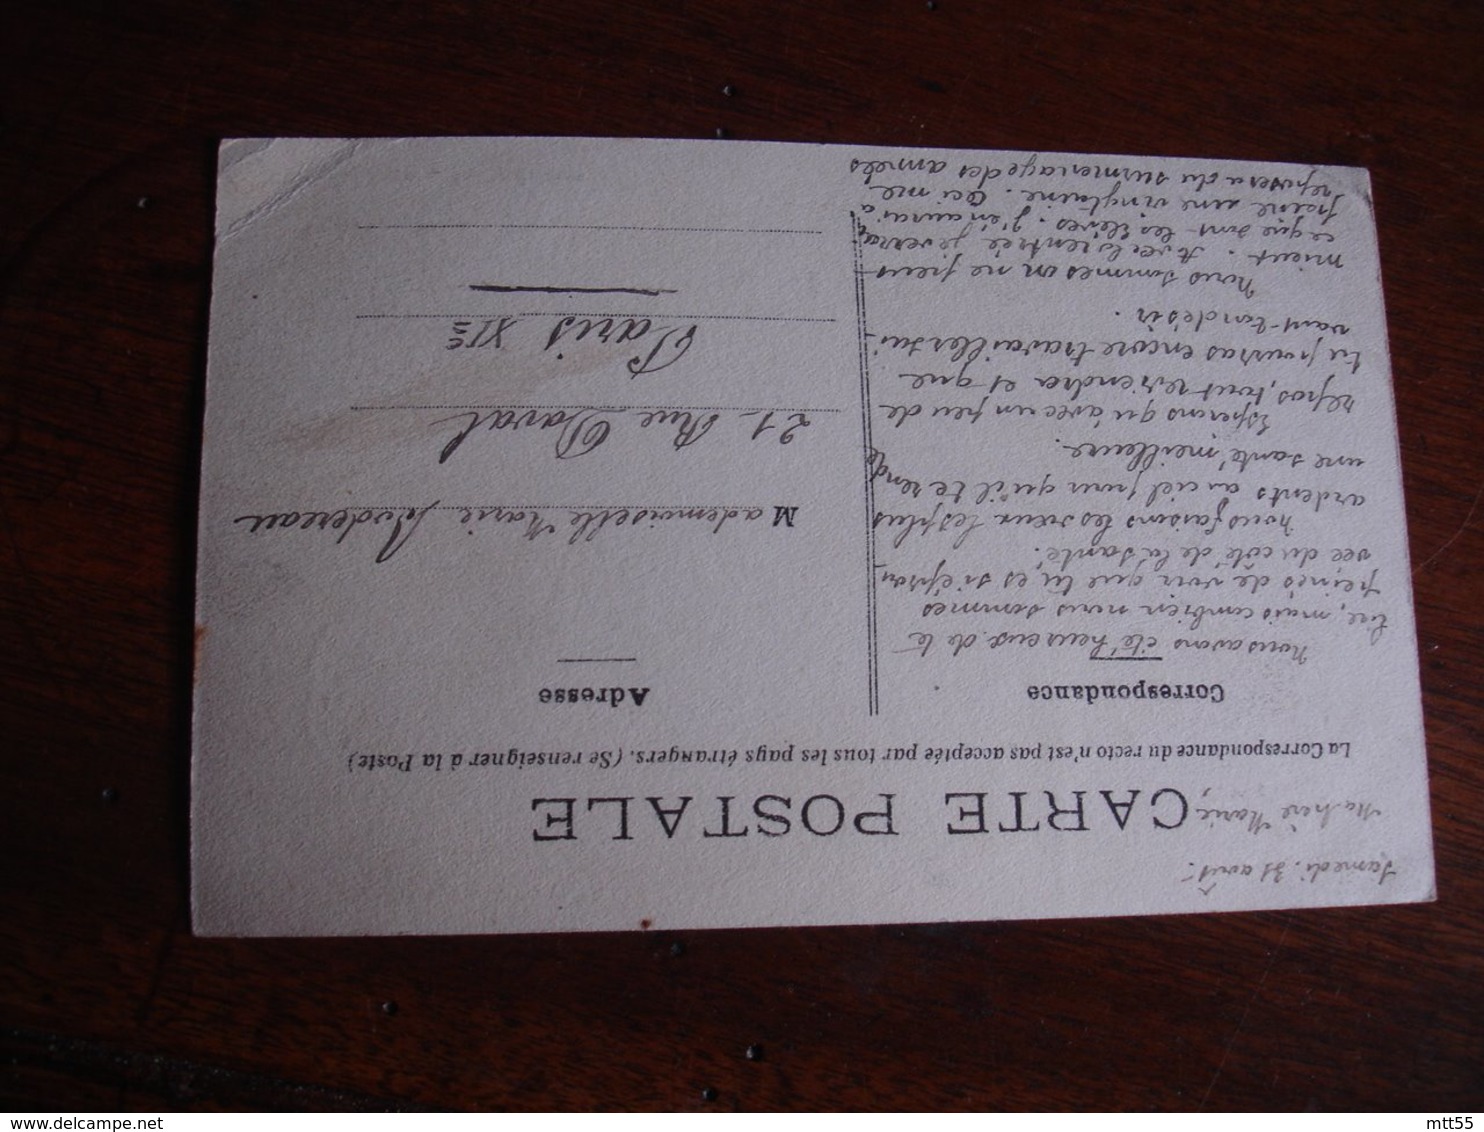 Samedi 31 août.
Ma chère Marie,
CARTE POSTALE
La Correspondance du recto n'est pas acceptée par tous les pays étrangers. (Se renseigner à la Poste)
Correspondance
Nous avons été heureux de te
lire, mais combien nous sommes
peinés de voir que tu es si éprou-
vée du côté de la santé.
Nous faisons les vœux les plus
ardents au ciel pour qu'il te rende
une santé meilleure.
Espérons qu'avec un peu de
repos, tout reviendra et que
tu pourras encore travailler sui-
vant ton désir.
Nous sommes on ne peut
mieux. Avec la rentrée je verrai
ce que sont les élèves. J'en aurai à
peine une vingtaine. Ceci me
reposera du surmenage des années
Adresse
Mademoiselle Marie
21 Rue Daval
Paris XIe
delcampe.net
mtt55